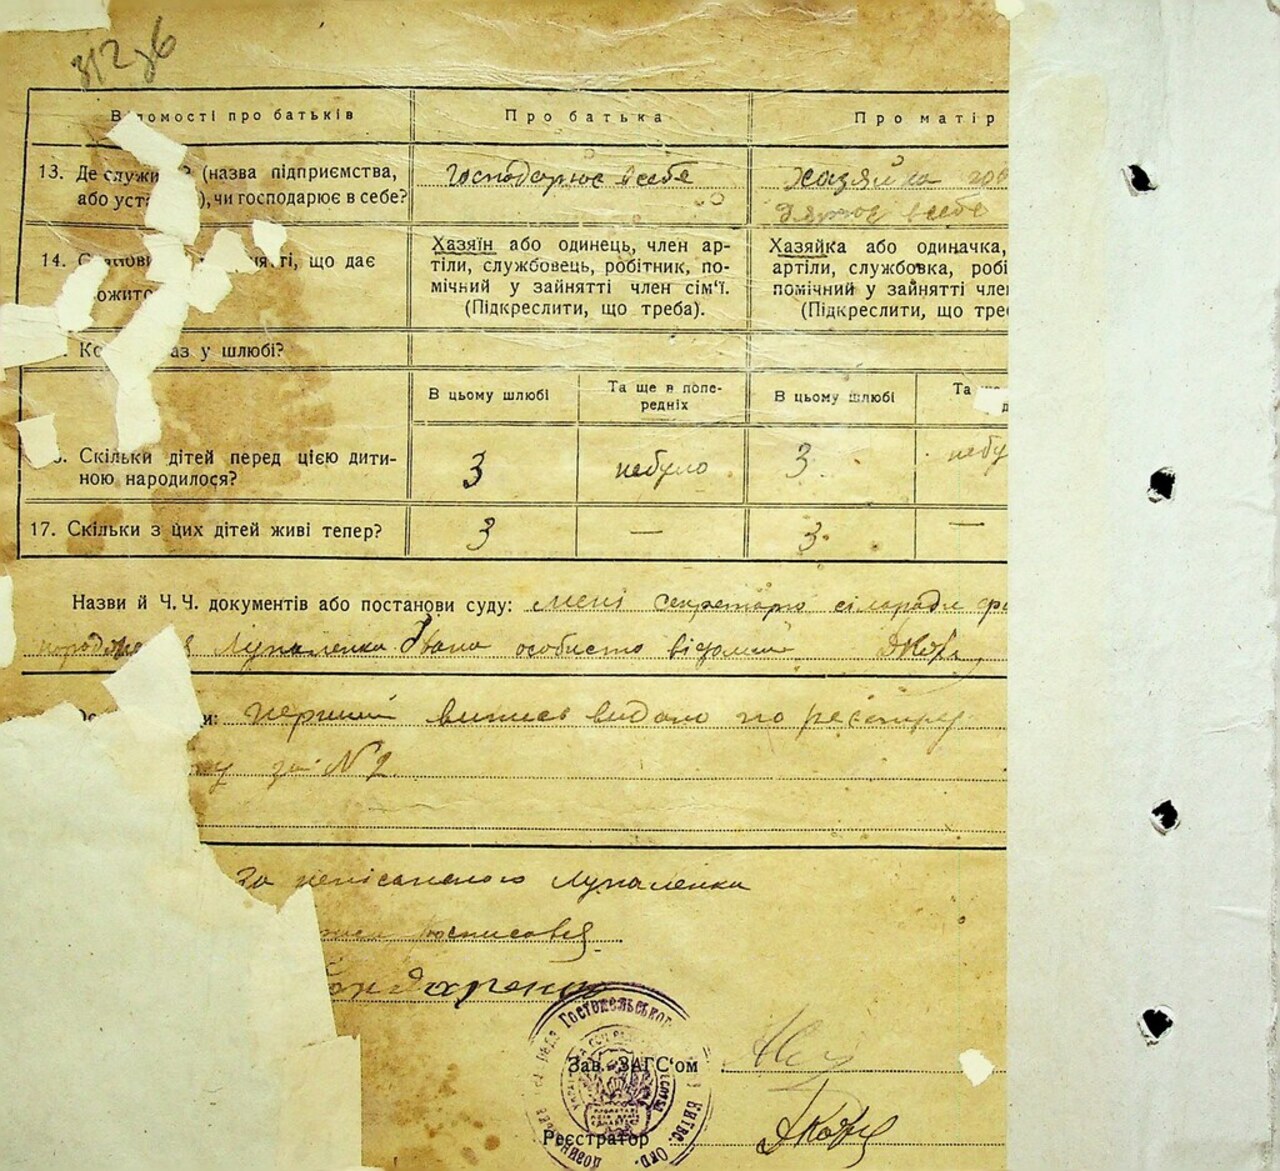 31226
Відомості про батьків
Про батька
Про матір
13. Де служи ? (назва підприємства, або уст ), чи господарює в себе?
Господарює в себе
Хазяйка гос
в себе
14. нятті, що дає
ожит
Хазяїн або одинець, член ар-
тіли, службовець, робітник, по-
мічний у зайнятті член сім'ї.
(Підкреслити, що треба).
Хазяйка або одиначка,
артіли, службовка, робі
помічний у зайнятті чле
(Підкреслити, що тре
. Ко аз у шлюбі?
В цьому шлюбі
Та ще в попе-
редніх
В цьому шлюбі
Та
6. Скільки дітей перед цією дити-
ною народилося?
3
небуло
3
небу
17. Скільки з цих дітей живі тепер?
3
—
3
—
Назви й Ч.Ч. документів або постанови суду: мені секретарю сілради ф
народження Лупаленка Івана особисто відомий
и: перший випис видано по реєстру
за № 2
За неписьменого Лупаленка
росписався
Бондаренко
Гостомельської
Київс. Окр.
Зав. ЗАГС'ом
Реєстратор